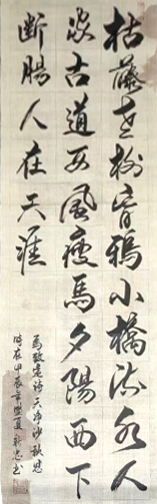 枯藤老樹昏鴉小橋流水人
家古道西風瘦馬夕陽西下
断腸人在天涯
馬致遠詩天净沙秋思
時在甲辰年盛夏新忠书